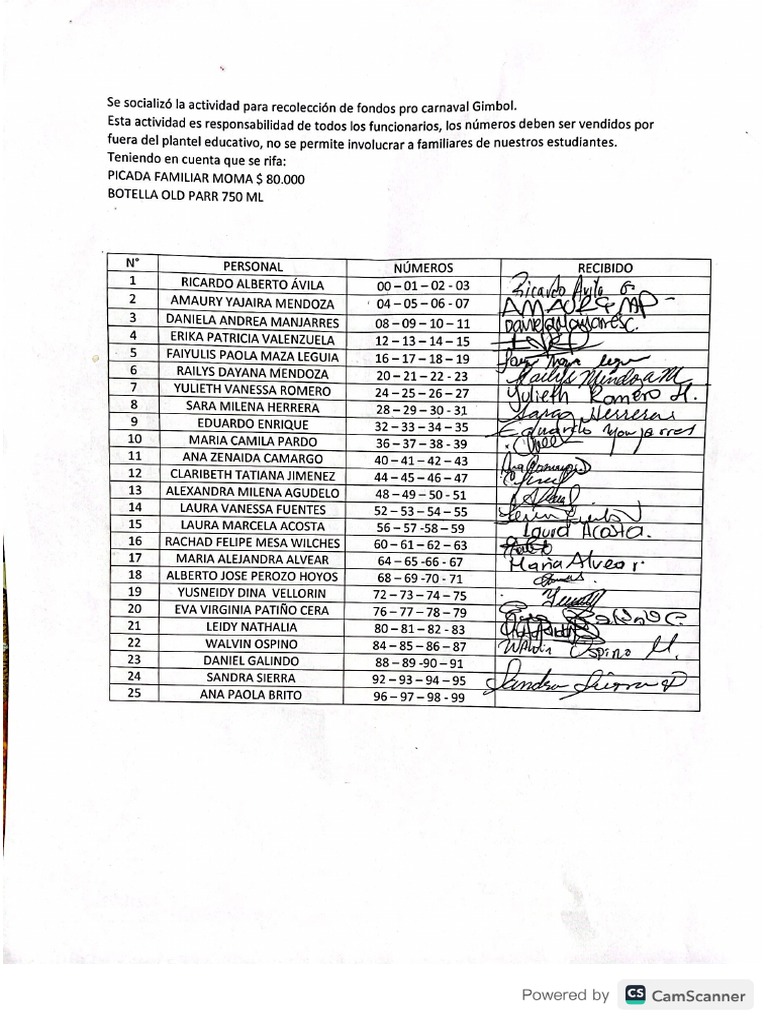 Se socializó la actividad para recolección de fondos pro carnaval Gimbol.
Esta actividad es responsabilidad de todos los funcionarios, los números deben ser vendidos por
fuera del plantel educativo, no se permite involucrar a familiares de nuestros estudiantes.
Teniendo en cuenta que se rifa:
PICADA FAMILIAR MOMA $ 80.000
BOTELLA OLD PARR 750 ML
N° PERSONAL NÚMEROS RECIBIDO
1 RICARDO ALBERTO ÁVILA 00 – 01 – 02 - 03 Ricardo Avila G
2 AMAURY YAJAIRA MENDOZA 04 – 05 – 06 - 07
3 DANIELA ANDREA MANJARRES 08 – 09 – 10 – 11
4 ERIKA PATRICIA VALENZUELA 12 – 13 – 14 – 15
5 FAIYULIS PAOLA MAZA LEGUIA 16 – 17 – 18 - 19
6 RAILYS DAYANA MENDOZA 20 – 21 – 22 - 23 Railys Mendoza M
7 YULIETH VANESSA ROMERO 24 – 25 – 26 – 27 Yulieth Romero H.
8 SARA MILENA HERRERA 28 – 29 – 30 - 31 Sara Herrera
9 EDUARDO ENRIQUE 32 – 33 – 34 – 35 Eduardo Manjarres
10 MARIA CAMILA PARDO 36 – 37 – 38 - 39
11 ANA ZENAIDA CAMARGO 40 – 41 – 42 – 43
12 CLARIBETH TATIANA JIMENEZ 44 – 45 – 46 – 47
13 ALEXANDRA MILENA AGUDELO 48 – 49 – 50 - 51
14 LAURA VANESSA FUENTES 52 – 53 – 54 – 55
15 LAURA MARCELA ACOSTA 56 – 57 -58 – 59 Laura Acosta.
16 RACHAD FELIPE MESA WILCHES 60 – 61 – 62 – 63
17 MARIA ALEJANDRA ALVEAR 64 – 65 -66 - 67 Maria Alvear.
18 ALBERTO JOSE PEROZO HOYOS 68 – 69 -70 - 71
19 YUSNEIDY DINA VELLORIN 72 – 73 – 74 – 75
20 EVA VIRGINIA PATIÑO CERA 76 – 77 – 78 – 79
21 LEIDY NATHALIA 80 – 81 – 82 - 83
22 WALVIN OSPINO 84 – 85 – 86 – 87 Ospino M.
23 DANIEL GALINDO 88 – 89 -90 – 91
24 SANDRA SIERRA 92 – 93 – 94 – 95 Sandra Sierra
25 ANA PAOLA BRITO 96 – 97 – 98 - 99
Powered by CS CamScanner